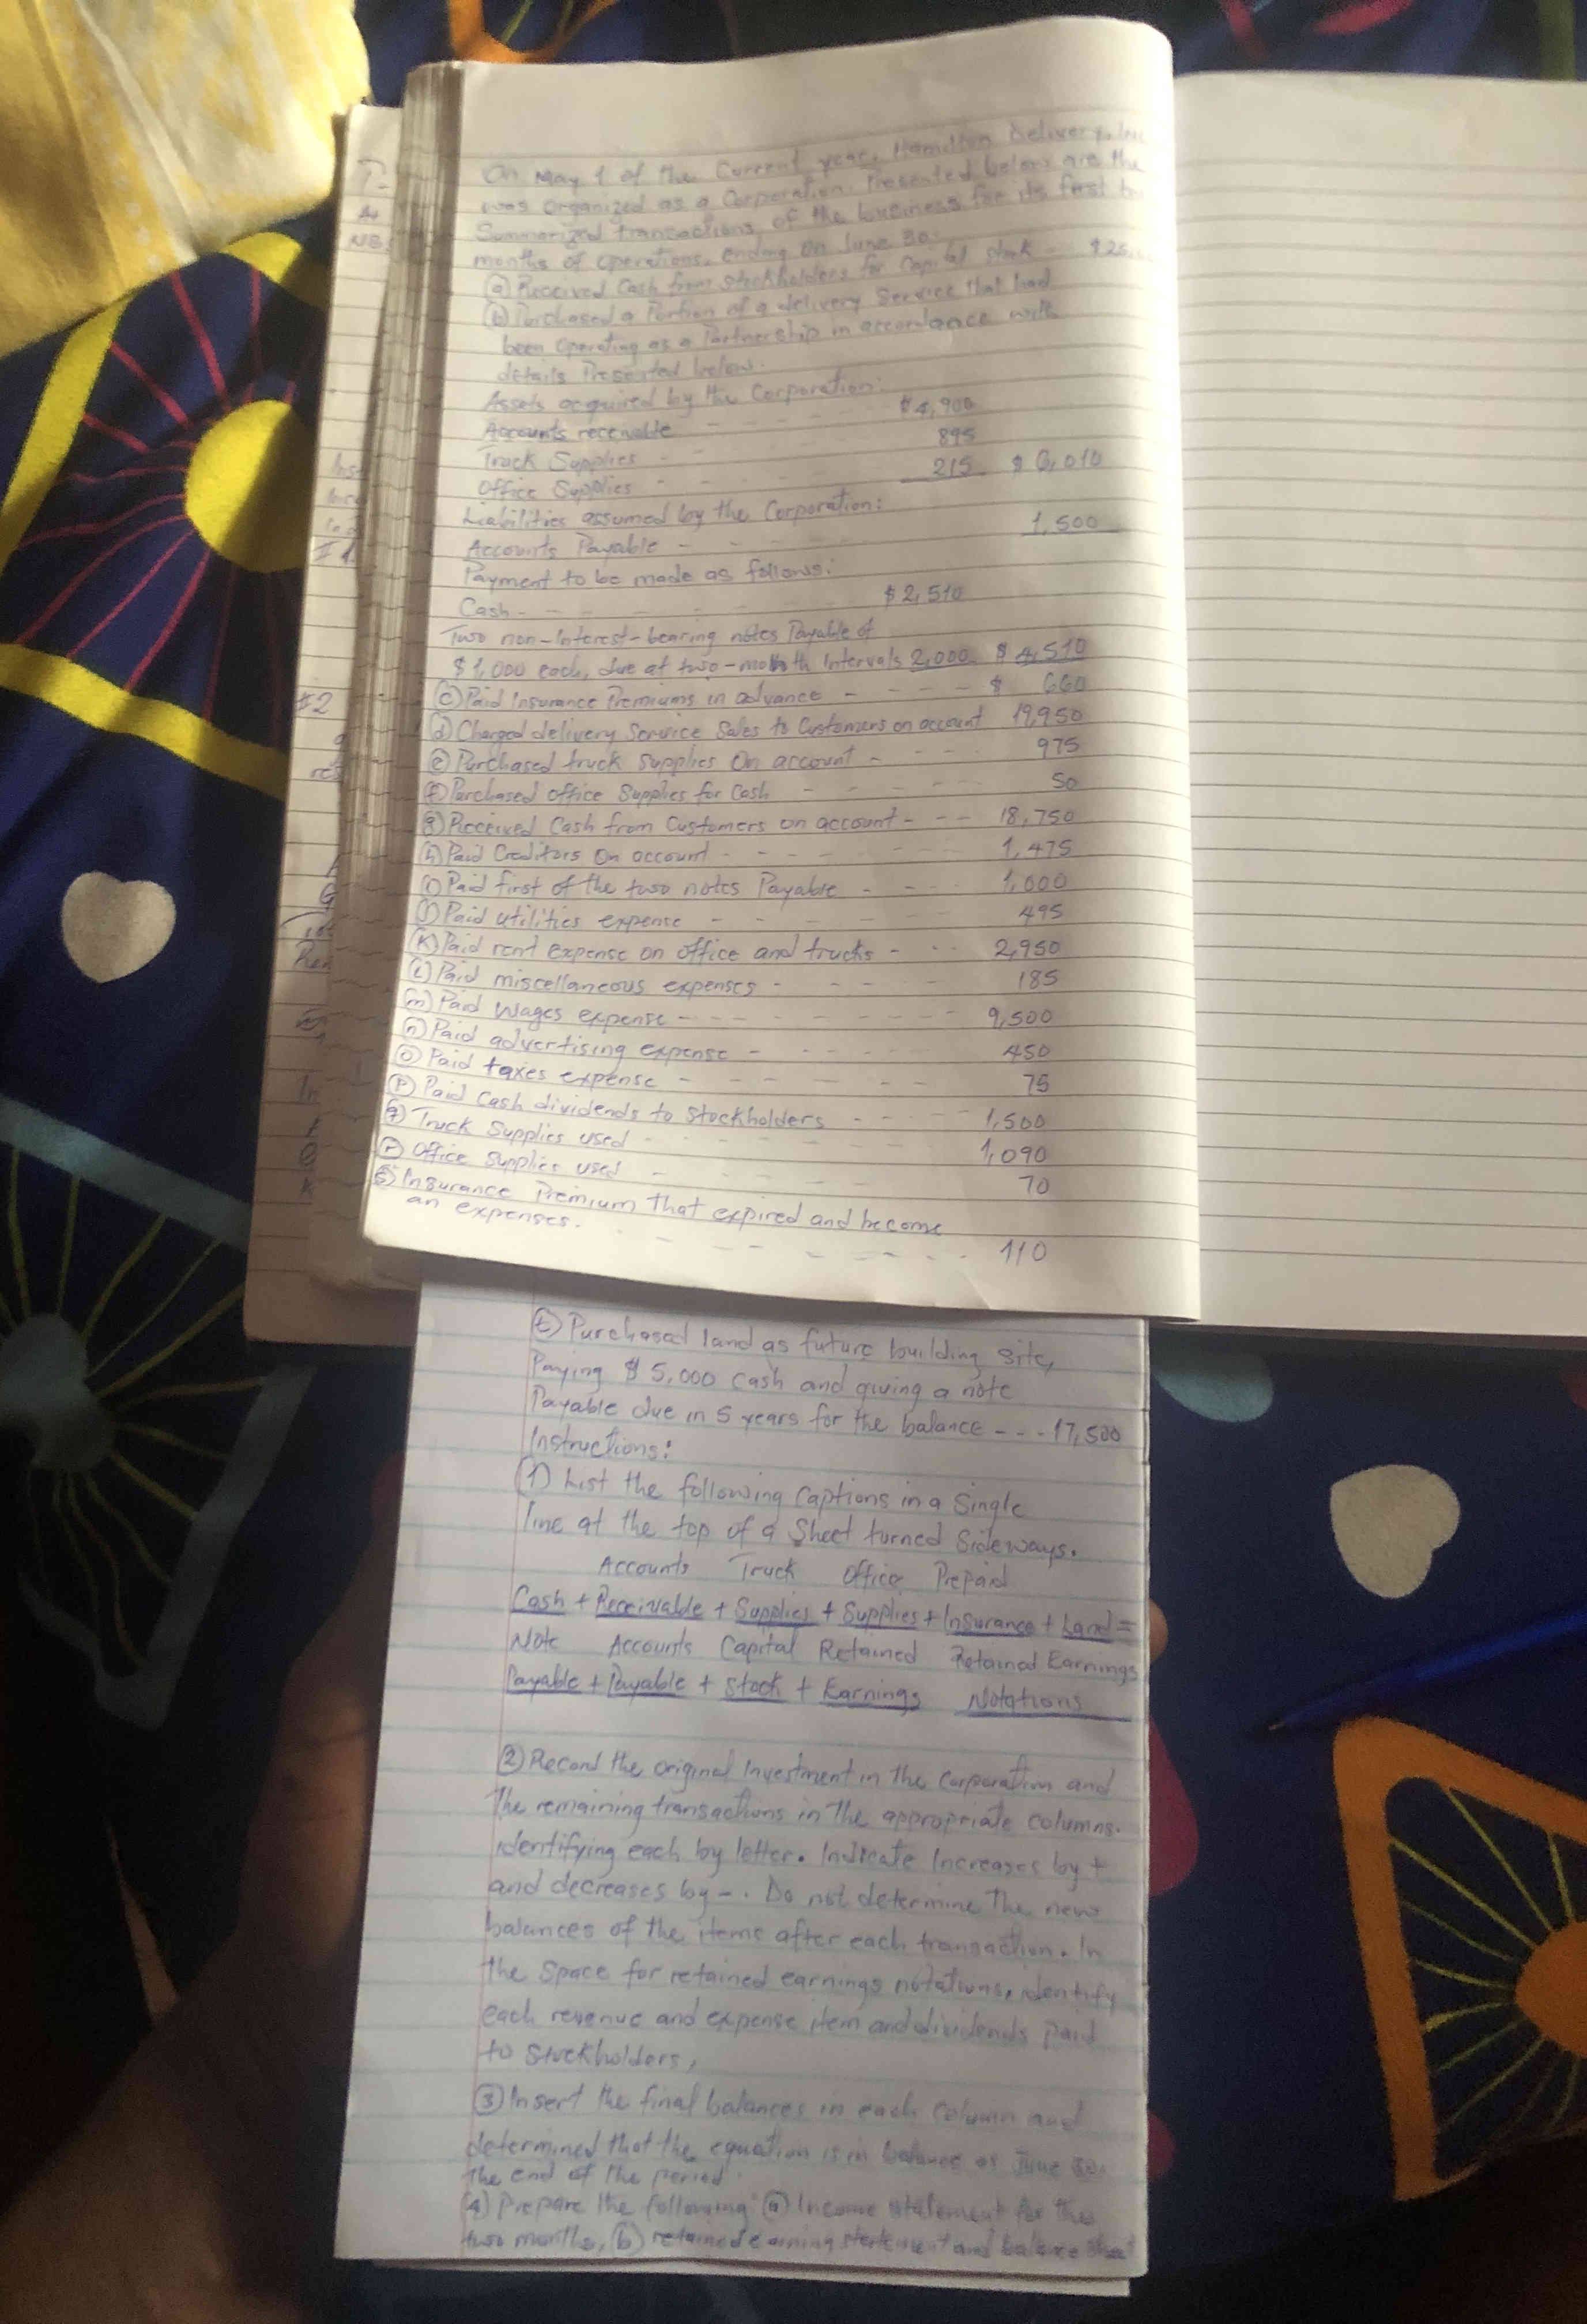 On May 1 of the Current year, Hamilton Delivery, Inc
was organized as a Corporation. Presented below are the
Summarized transactions of the business for its first
months of operations, ending on June 30.
(a) Received Cash from stockholders for Capital stock - $25,
(b) Purchased a Portion of a delivery Service that had
been operating as a Partnership in accordance with
details Presented below.
Assets acquired by the Corporation:
Accounts receivable - - - - $4,900
Truck Supplies - - - 895
Office Supplies - - - 215 $ 6,010
Liabilities assumed by the Corporation:
Accounts Payable - - - - 1,500
Payment to be made as follows:
Cash - - - - - - $ 2,510
Two non-Interest-bearing notes Payable of
$1,000 each, due at two-month Intervals 2,000 $ 4,510
(c) Paid Insurance Premiums in advance - - - - $ 660
(d) Charged delivery Service Sales to Customers on account 19,950
(e) Purchased truck supplies On account - - - - 975
(f) Purchased office Supplies for Cash - - - - 50
(g) Received Cash from Customers on account - - - 18,750
(h) Paid Creditors On account - - - - - - 1,475
(i) Paid first of the two notes Payable - - - - 1,000
(j) Paid utilities expense - - - - - - 495
(k) Paid rent expense on office and trucks - - - 2,950
(l) Paid miscellaneous expenses - - - - - 185
(m) Paid wages expense - - - - - - - - 9,500
(n) Paid advertising expense - - - - - - 450
(o) Paid taxes expense - - - - - - - 75
(p) Paid Cash dividends to Stockholders - - - - - 1,500
(q) Truck Supplies used - - - - - - - - 1,090
(r) Office Supplies used - - - - - - 70
(s) Insurance Premium that expired and become
an expenses. - - - - - - - - 110
(t) Purchased land as future building site,
Paying $ 5,000 cash and giving a note
Payable due in 5 years for the balance - - - 17,500
Instructions:
(1) List the following Captions in a Single
line at the top of a Sheet turned Sideways.
Accounts Truck Office Prepaid
Cash + Receivable + Supplies + Supplies + Insurance + Land =
Note Accounts Capital Retained Retained Earnings
Payable + Payable + Stock + Earnings Notations
(2) Record the original Investment in the Corporation and
The remaining transactions in The appropriate columns.
identifying each by letter. Indicate Increases by +
and decreases by -. Do not determine The new
balances of the items after each transaction. In
the Space for retained earnings notations, identify
each revenue and expense item and dividends paid
to Stockholders,
(3) Insert the final balances in each Column and
determined that the equation is in balance as June 30.
The end of the period.
(4) Prepare the following (a) Income statement for the
two months, (b) retained earning statement and balance sheet